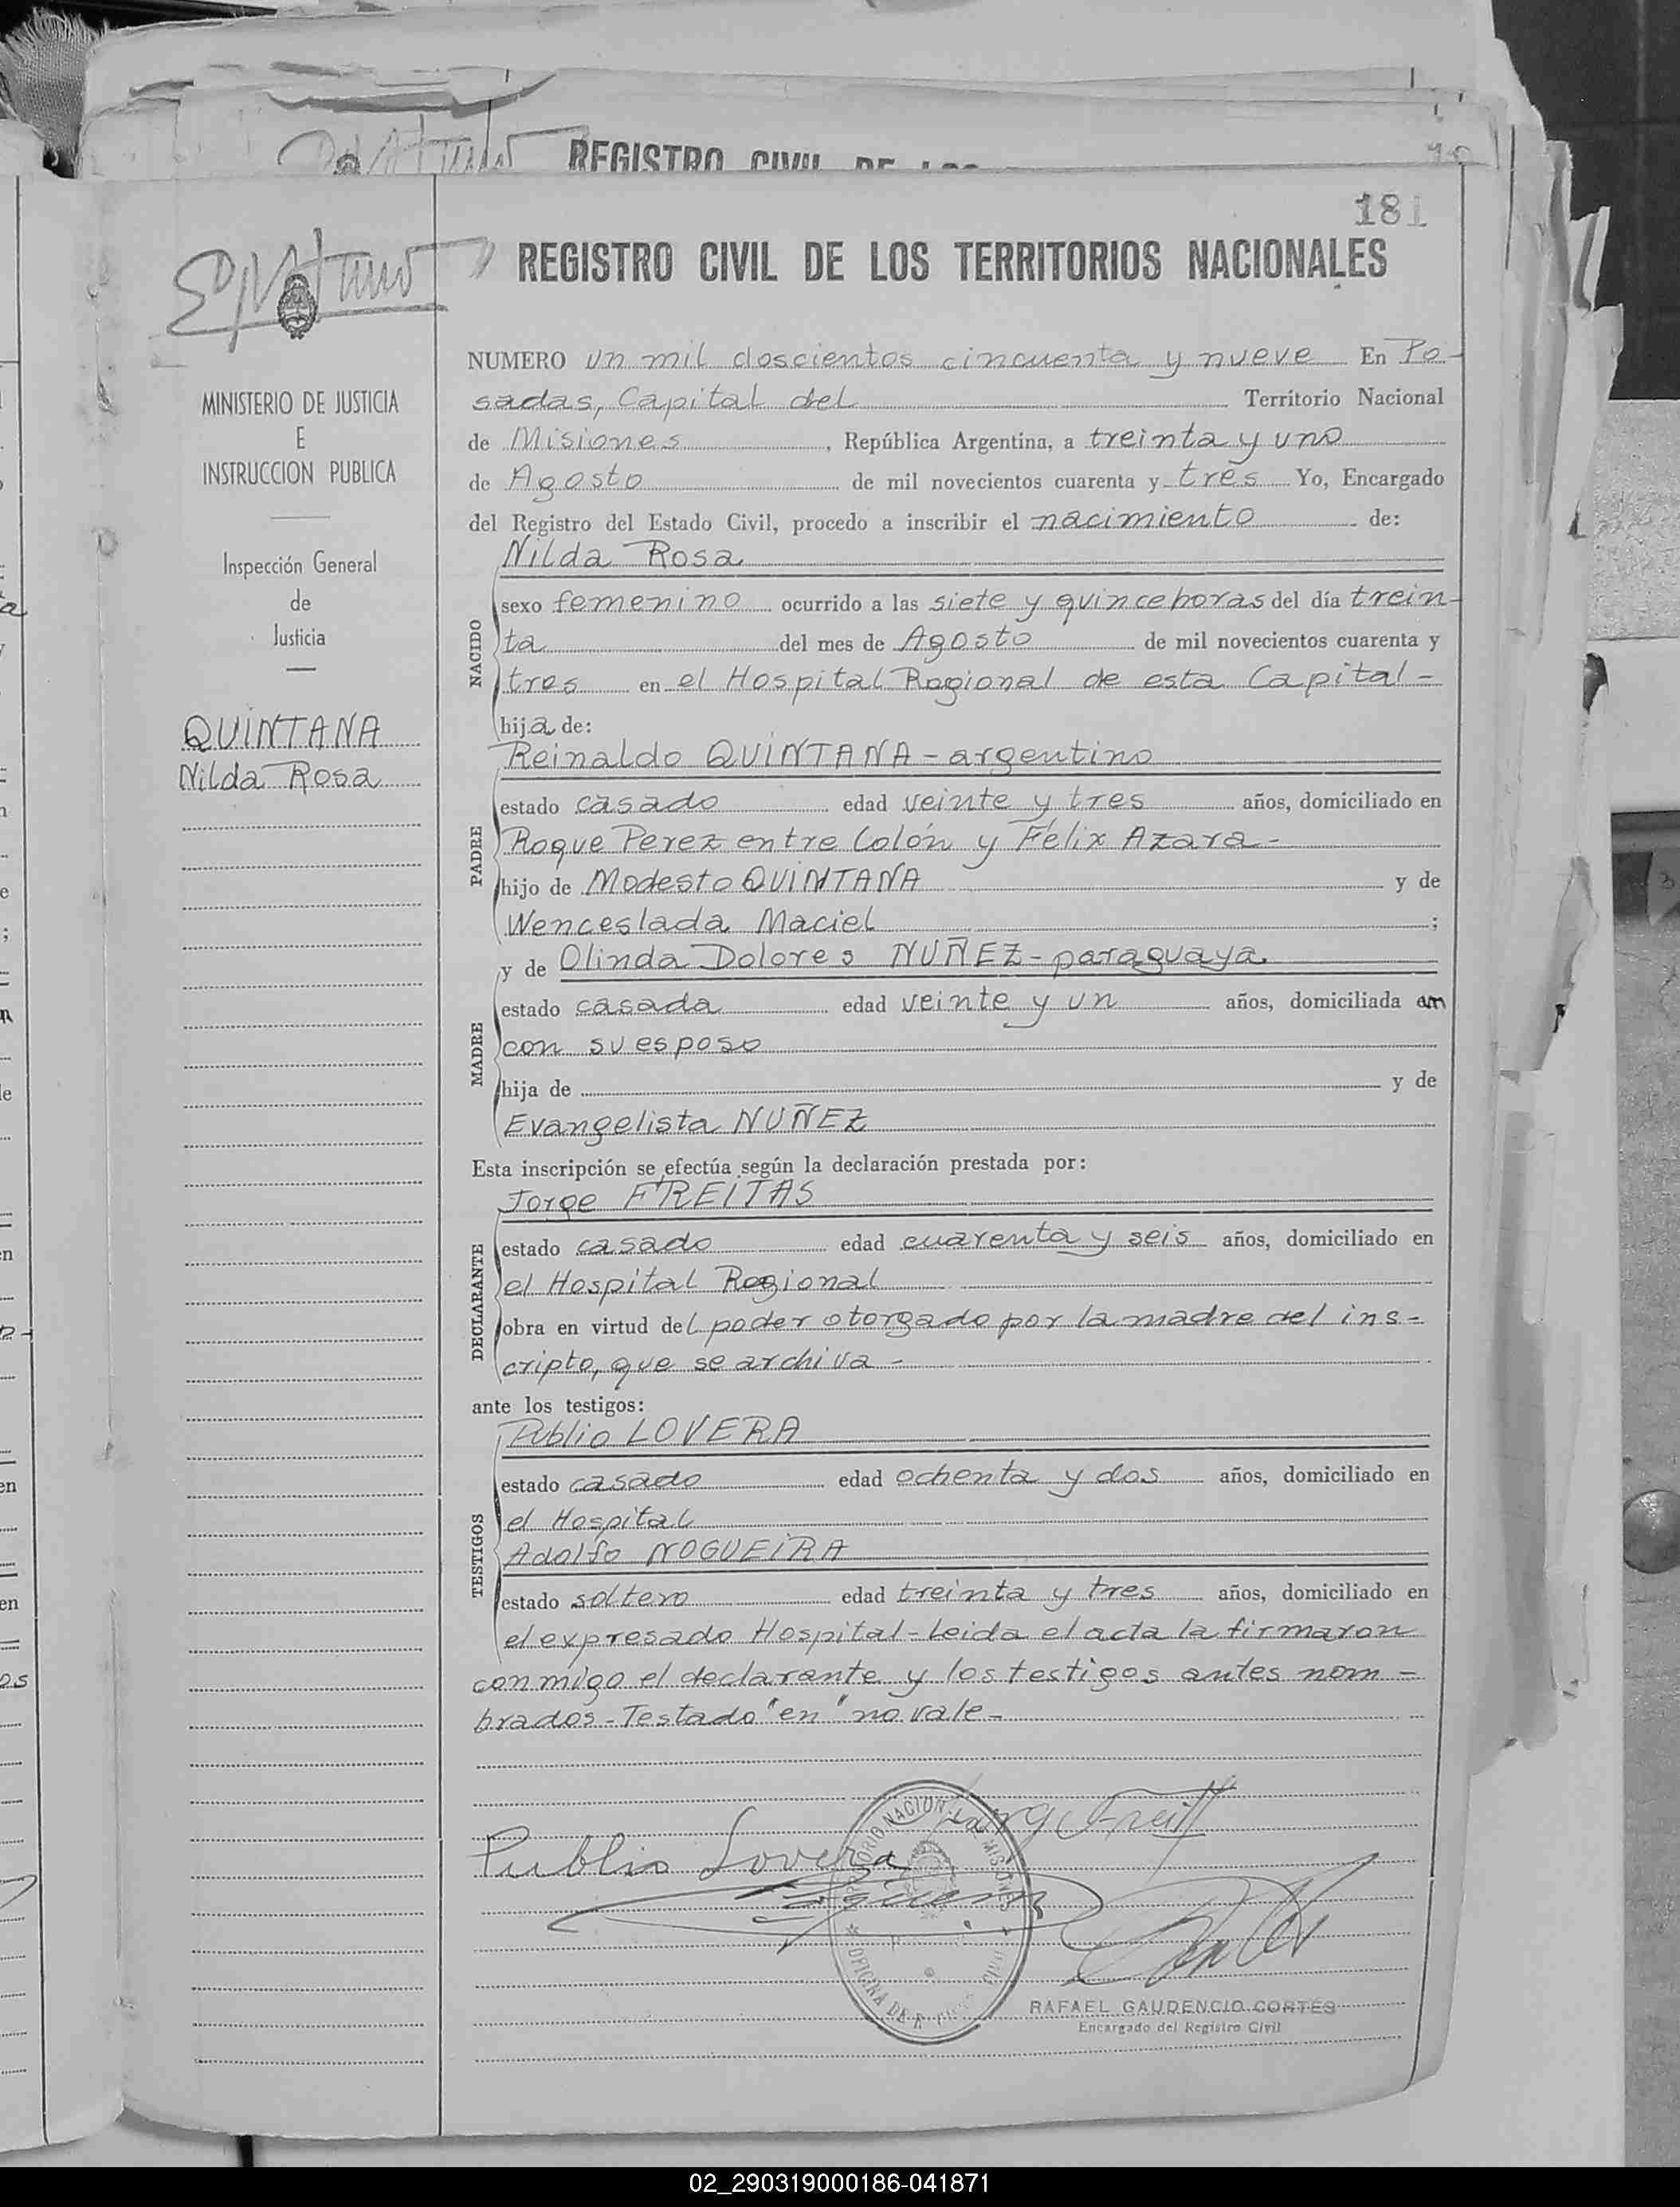 REGISTRO CIVIL DE LOS
181
REGISTRO CIVIL DE LOS TERRITORIOS NACIONALES
MINISTERIO DE JUSTICIA
E
INSTRUCCION PUBLICA
Inspección General
de
Justicia
QUINTANA
Nilda Rosa
NUMERO un mil doscientos cincuenta y nueve En Po-
sadas, Capital del Territorio Nacional
de Misiones, República Argentina, a treinta y uno
de Agosto de mil novecientos cuarenta y tres Yo, Encargado
del Registro del Estado Civil, procedo a inscribir el nacimiento de:
NACIDO
Nilda Rosa
sexo femenino ocurrido a las siete y quince horas del día trein-
ta del mes de Agosto de mil novecientos cuarenta y
tres en el Hospital Regional de esta Capital-
hija de:
PADRE
Reinaldo QUINTANA-argentino
estado casado edad veinte y tres años, domiciliado en
Roque Perez entre Colón y Félix Azara-
hijo de Modesto QUINTANA y de
Wenceslada Maciel ;
MADRE
y de Olinda Dolores NUÑEZ-paraguaya
estado casada edad veinte y un años, domiciliada en
con su esposo
hija de y de
Evangelista NUÑEZ
Esta inscripción se efectúa según la declaración prestada por:
DECLARANTE
Jorge FREITAS
estado casado edad cuarenta y seis años, domiciliado en
el Hospital Regional
obra en virtud del poder otorgado por la madre del ins-
cripto, que se archiva-
ante los testigos:
TESTIGOS
Publio LOVERA
estado casado edad ochenta y dos años, domiciliado en
el Hospital
Adolfo NOGUEIRA
estado soltero edad treinta y tres años, domiciliado en
el expresado Hospital-Leida el acta la firmaron
conmigo el declarante y los testigos antes nom-
brados-Testado "en" no vale-
Publio Lovera
RAFAEL GAUDENCIO CORTÉS
Encargado del Registro Civil
02_290319000186-041871